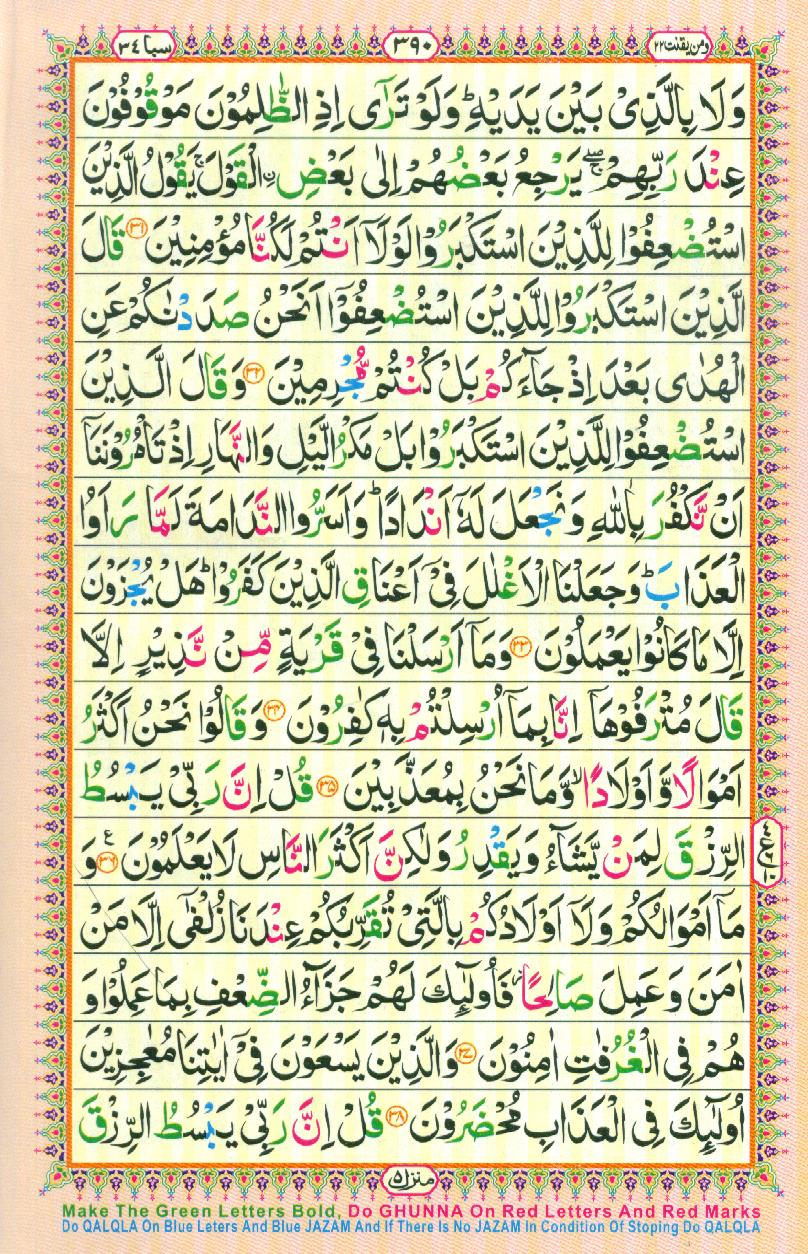 ومن یقنت ۲۲
۳۹۰
سبا ۳٤
وَلَا بِالَّذِیْ بَیْنَ یَدَیْهِ ؕ وَلَوْ تَرٰۤی اِذِ الظّٰلِمُوْنَ مَوْقُوْفُوْنَ
عِنْدَ رَبِّهِمْ ۖۚ یَرْجِعُ بَعْضُهُمْ اِلٰی بَعْضِ ِۨالْقَوْلَ ۚ یَقُوْلُ الَّذِیْنَ
اسْتُضْعِفُوْا لِلَّذِیْنَ اسْتَكْبَرُوْا لَوْلَاۤ اَنْتُمْ لَكُنَّا مُؤْمِنِیْنَ ۳۱ قَالَ
الَّذِیْنَ اسْتَكْبَرُوْا لِلَّذِیْنَ اسْتُضْعِفُوْۤا اَنَحْنُ صَدَدْنٰكُمْ عَنِ
الْهُدٰی بَعْدَ اِذْ جَآءَكُمْ بَلْ كُنْتُمْ مُّجْرِمِیْنَ ۳۲ وَقَالَ الَّذِیْنَ
اسْتُضْعِفُوْا لِلَّذِیْنَ اسْتَكْبَرُوْا بَلْ مَكْرُ الَّیْلِ وَالنَّهَارِ اِذْ تَاْمُرُوْنَنَاۤ
اَنْ نَّكْفُرَ بِاللّٰهِ وَنَجْعَلَ لَهٗۤ اَنْدَادًا ؕ وَاَسَرُّوا النَّدَامَةَ لَمَّا رَاَوُا
الْعَذَابَ ؕ وَجَعَلْنَا الْاَغْلٰلَ فِیْۤ اَعْنَاقِ الَّذِیْنَ كَفَرُوْا ؕ هَلْ یُجْزَوْنَ
اِلَّا مَا كَانُوْا یَعْمَلُوْنَ ۳۳ وَمَاۤ اَرْسَلْنَا فِیْ قَرْیَةٍ مِّنْ نَّذِیْرٍ اِلَّا
قَالَ مُتْرَفُوْهَاۤ اِنَّا بِمَاۤ اُرْسِلْتُمْ بِهٖ كٰفِرُوْنَ ۳٤ وَقَالُوْا نَحْنُ اَكْثَرُ
اَمْوَالًا وَّاَوْلَادًا ۙ وَّمَا نَحْنُ بِمُعَذَّبِیْنَ ۳۵ قُلْ اِنَّ رَبِّیْ یَبْسُطُ
الرِّزْقَ لِمَنْ یَّشَآءُ وَیَقْدِرُ وَلٰكِنَّ اَكْثَرَ النَّاسِ لَا یَعْلَمُوْنَ ۳٦ ع وَ
مَاۤ اَمْوَالُكُمْ وَلَاۤ اَوْلَادُكُمْ بِالَّتِیْ تُقَرِّبُكُمْ عِنْدَنَا زُلْفٰۤی اِلَّا مَنْ
اٰمَنَ وَعَمِلَ صَالِحًا ؗ فَاُولٰٓئِكَ لَهُمْ جَزَآءُ الضِّعْفِ بِمَا عَمِلُوْا وَ
هُمْ فِی الْغُرُفٰتِ اٰمِنُوْنَ ۳۷ وَالَّذِیْنَ یَسْعَوْنَ فِیْۤ اٰیٰتِنَا مُعٰجِزِیْنَ
اُولٰٓئِكَ فِی الْعَذَابِ مُحْضَرُوْنَ ۳۸ قُلْ اِنَّ رَبِّیْ یَبْسُطُ الرِّزْقَ
منزل ۵
Make The Green Letters Bold, Do GHUNNA On Red Letters And Red Marks
Do QALQLA On Blue Leters And Blue JAZAM And If There Is No JAZAM In Condition Of Stoping Do QALQLA